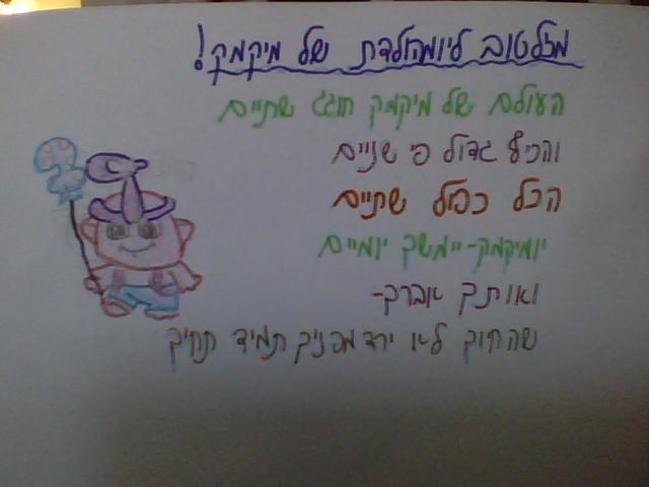 מזלטוב ליומהולדת של מיקמק!
העולם של מיקמק חוגג שתיים
והכיף גדול פי שניים
הכל כפול שתיים
יומיקמק-יימשך יומיים
ואותך אברך-
שהחיוך לא ירד מפניך תמיד תחייך